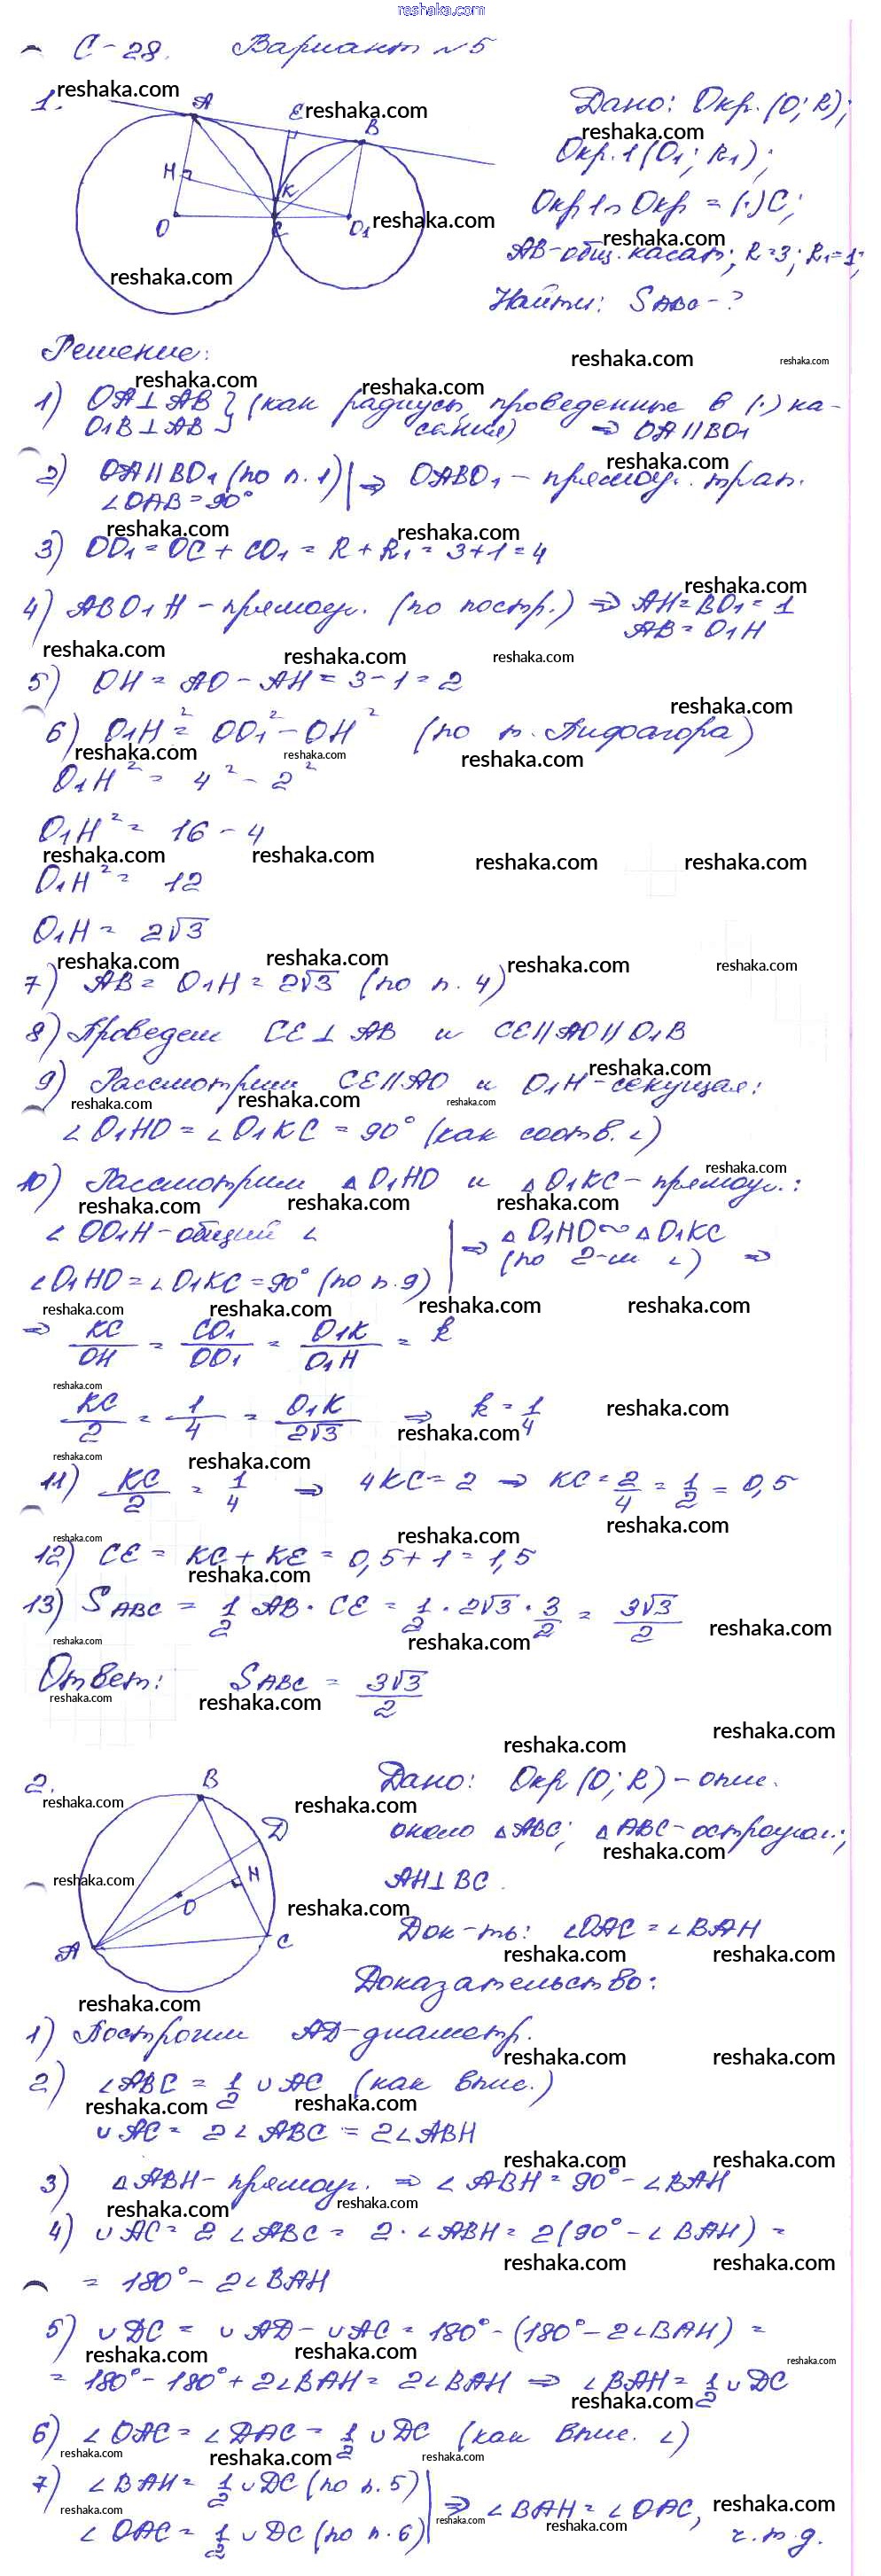 reshaka.com
С-28. Вариант №5
1.
A
E
B
H
K
O
C
O₁
Дано: Окр. (O; R);
Окр.1 (O₁; R₁);
Окр1 ∩ Окр = (·) C;
AB-общ. касат; R=3; R₁=1;
Найти: S ABO - ?
Решение:
1) OA⊥AB } (как радиусы, проведенные в (·) ка-
O₁B⊥AB } сания) ⇒ OA∥BO₁
2) OA∥BO₁ (по п. 1) | ⇒ OABO₁ - прямоуг. трап.
∠OAB = 90°
3) OO₁ = OC + CO₁ = R + R₁ = 3+1 = 4
4) ABO₁H - прямоуг. (по постр.) ⇒ AH = BO₁ = 1
AB = O₁H
5) OH = AO - AH = 3-1 = 2
6) O₁H² = OO₁² - OH² (по т. Пифагора)
O₁H² = 4² - 2²
O₁H² = 16 - 4
O₁H² = 12
O₁H = 2√3
7) AB = O₁H = 2√3 (по п. 4)
8) Проведем CE⊥AB и CE∥AO∥O₁B
9) Рассмотрим CE∥AO и O₁H-секущая:
∠O₁HO = ∠O₁KC = 90° (как соотв. ∠)
10) Рассмотрим △O₁HO и △O₁KC - прямоуг.:
∠OO₁H - общий ∠ | ⇒ △O₁HO ∾ △O₁KC
∠O₁HO = ∠O₁KC = 90° (по п. 9) | (по 2-м ∠) ⇒
⇒ KC/OH = CO₁/OO₁ = O₁K/O₁H = k
KC/2 = 1/4 = O₁K/2√3 ⇒ k = 1/4
11) KC/2 = 1/4 ⇒ 4KC = 2 ⇒ KC = 2/4 = 1/2 = 0,5
12) CE = KC + KE = 0,5 + 1 = 1,5
13) S ABC = 1/2 AB · CE = 1/2 · 2√3 · 3/2 = 3√3/2
Ответ: S ABC = 3√3/2
2.
B
D
H
O
A
C
Дано: Окр (O; R) - опис.
около △ABC; △ABC-остроугол.;
AH⊥BC.
Док-ть: ∠OAC = ∠BAH
Доказательство:
1) Построим AD-диаметр.
2) ∠ABC = 1/2 ∪AC (как впис.)
∪AC = 2∠ABC = 2∠ABH
3) △ABH - прямоуг. ⇒ ∠ABH = 90° - ∠BAH
4) ∪AC = 2∠ABC = 2·∠ABH = 2(90° - ∠BAH) =
= 180° - 2∠BAH
5) ∪DC = ∪AD - ∪AC = 180° - (180° - 2∠BAH) =
= 180° - 180° + 2∠BAH = 2∠BAH ⇒ ∠BAH = 1/2 ∪DC
6) ∠OAC = ∠DAC = 1/2 ∪DC (как впис. ∠)
7) ∠BAH = 1/2 ∪DC (по п. 5) | ⇒ ∠BAH = ∠OAC,
∠OAC = 1/2 ∪DC (по п. 6) | ч.т.д.